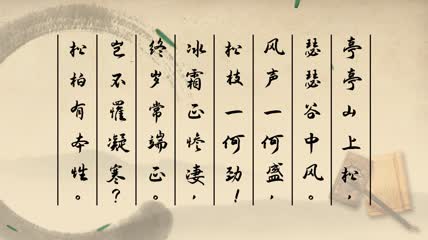 亭亭山上松，
瑟瑟谷中风。
风声一何盛，
松枝一何劲！
冰霜正惨凄，
终岁常端正。
岂不罹凝寒？
松柏有本性。